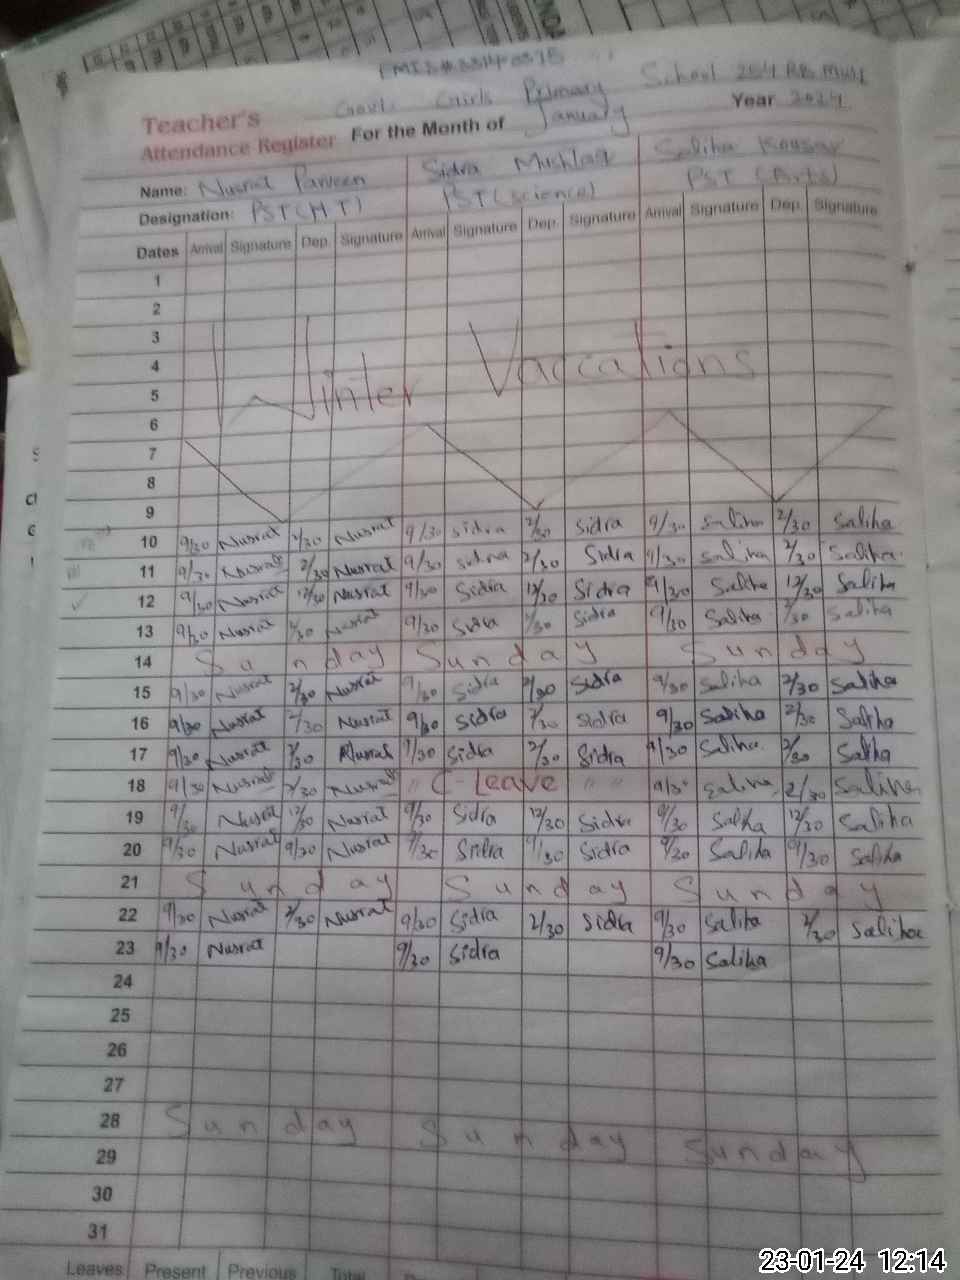 Govt. Girls Primary School 254 RB
Teacher's
Attendance Register For the Month of January Year 2024
Name: Nusrat Parveen Sidra Mushtaq Saliha Kousar
Designation: PST (HT) PST (science) PST (Arts)
Dates Arrival Signature Dep. Signature Arrival Signature Dep. Signature Arrival Signature Dep. Signature
1
2
3
4
5
Winter Vaccations
6
7
8
9
10 9/30 Nusrat 2/30 Nusrat 9/30 sidra 2/30 sidra 9/30 saliha 2/30 saliha
11 9/30 Nusrat 2/30 Nusrat 9/30 sidra 2/30 Sidra 9/30 saliha 2/30 saliha
12 9/30 Nusrat 12/30 Nusrat 9/30 Sidra 12/30 Sidra 9/30 Saliha 12/30 Saliha
13 9/30 Nusrat 2/30 Nusrat 9/30 Sidra 2/30 Sidra 9/30 Saliha 2/30 saliha
14 Sunday Sunday Sunday
15 9/30 Nusrat 2/30 Nusrat 9/30 sidra 2/30 sidra 9/30 saliha 2/30 saliha
16 9/30 Nusrat 2/30 Nusrat 9/30 sidra 2/30 sidra 9/30 Saliha 2/30 Saliha
17 9/30 Nusrat 2/30 Nusrat 9/30 Sidra 2/30 Sidra 9/30 Saliha 2/30 Saliha
18 9/30 Nusrat 2/30 Nusrat " C-Leave " " 9/30 Saliha 2/30 Saliha
19 9/30 Nusrat 12/30 Nusrat 9/30 Sidra 12/30 Sidra 9/30 Saliha 12/30 Saliha
20 9/30 Nusrat 9/30 Nusrat 9/30 Sidra 9/30 Sidra 9/30 Saliha 9/30 Saliha
21 Sunday Sunday Sunday
22 9/30 Nusrat 2/30 Nusrat 9/30 Sidra 2/30 Sidra 9/30 Saliha 2/30 Saliha
23 9/30 Nusrat 9/30 Sidra 9/30 Saliha
24
25
26
27
28 Sunday Sunday Sunday
29
30
31
Leaves Present Previous Total
23-01-24 12:14